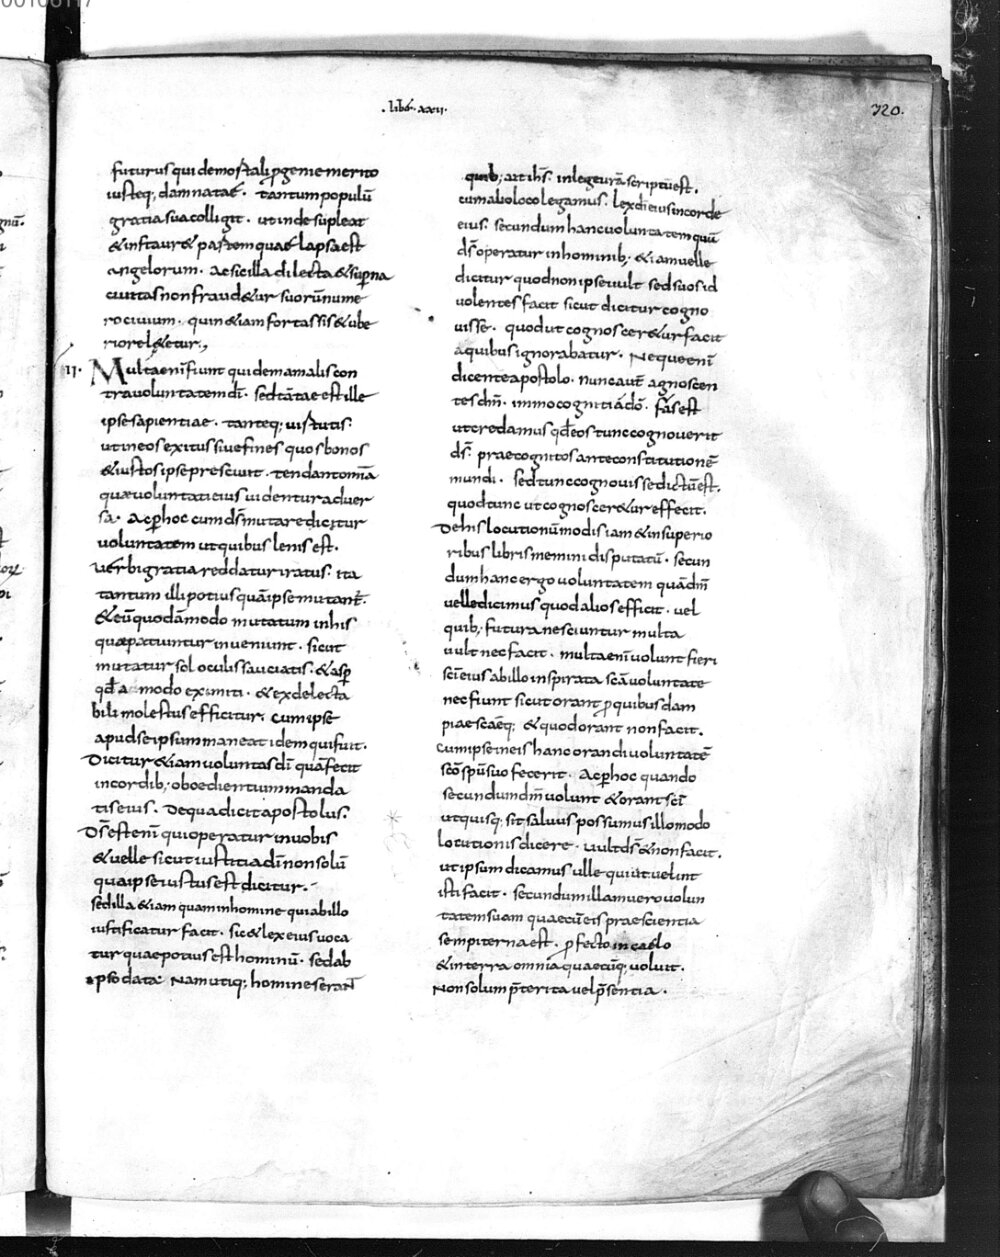 00100117
.lib̄.xxii.
320.
futurus qui demortali ꝓgenie merito
iusteq; damnatae. tantum populū
gratia sua colligit. ut inde supleat
& instaur& partem quae lapsa est
angelorum. ac sic illa dilecta & suꝑna
ciuitas non fraud&ur suorū nume
ro ciuium. quin &iam fortassis & ube
riore l&etur;
II. Multa enī fiunt quidem a malis con
tra uoluntatem dī. sed tātae est ille
ipse sapientiae. tanteq; uirtutis.
ut in eos exitus siue fines quos bonos
& iustos ipse presciuit. tendant omīa
quae uoluntati eius uidentur aduer
sa. Ac ꝑ hoc cum d̄s mutare dicitur
uoluntatem ut quibus lenis est.
uerbi gratia reddatur iratus. ita
tantum illi potius quā ipse mutant̄.
& eū quodāmodo mutatum in his
quae patiuntur inueniunt. sicut
mutatur sol oculis sauciatis. & asꝑ
qd̄ā modo ex miti. & ex delecta
bili molestus efficitur. cum ipse
apud se ipsum maneat idem qui fuit.
Dicitur &iam uoluntas dī quā fecit
in cordib; oboedientium manda
tis eius. De qua dicit apostolus.
D̄s est enī qui operatur in uobis
& uelle sicut iustitia dī non solū
qua ipse iustus est dicitur.
sed illa &iam quam in homine qui ab illo
iustificatur facit. sic & lex eius uoca
tur quae potius est hominū. sed ab
ipso data. Nam utiq; homines erant
quib; ait ih̄s. in lege urā scriptū est.
cum alio loco legamus. lex dī eius in corde
eius. secundum hanc uoluntatem quā
d̄s operatur in hominib; &iam uelle
dicitur quod non ipse uult sed suos id
uolentes facit sicut dicitur cogno
uisse. quod ut cognoscer&ur facit
a quibus ignorabatur. Neque enī
dicente apostolo. nunc aut̄ agnoscen
tes dm̄. immo cogniti a dō. fas est
ut credamus qđ eos tunc cognouerit
d̄s. praecognitos ante constitutionē
mundi. sed tunc cognouisse dictū est.
quod tunc ut cognoscer&ur effecit.
De his locutionū modis iam & in superio
ribus libris memini disputatū. secun
dum hanc ergo uoluntatem qua dm̄
uelle dicimus quod alios efficit. uel
quib; futura nesciuntur multa
uult nec facit. multa enī uolunt fieri
sc̄i eius ab illo inspirata sc̄a uoluntate
nec fiunt sicut orant ꝓ quibusdam
piae sc̄aeq; & quod orant non facit.
cum ipse in eis hanc orandi uoluntatē
sc̄o spū suo fecerit. Ac ꝑ hoc quando
secundum dm̄ uolunt & orant sc̄i
ut quisq; sit saluus possumus illo modo
locutionis dicere. uult d̄s & non facit.
ut ipsum dicamus uelle qui ut uelint
isti facit. secundum illam uero uolun
tatem suam quae cū eis praescientia
sempiterna est. ꝓfecto in caelo
& in terra omnia quaecūq; uoluit.
Non solum p̄terita uel p̄sentia.